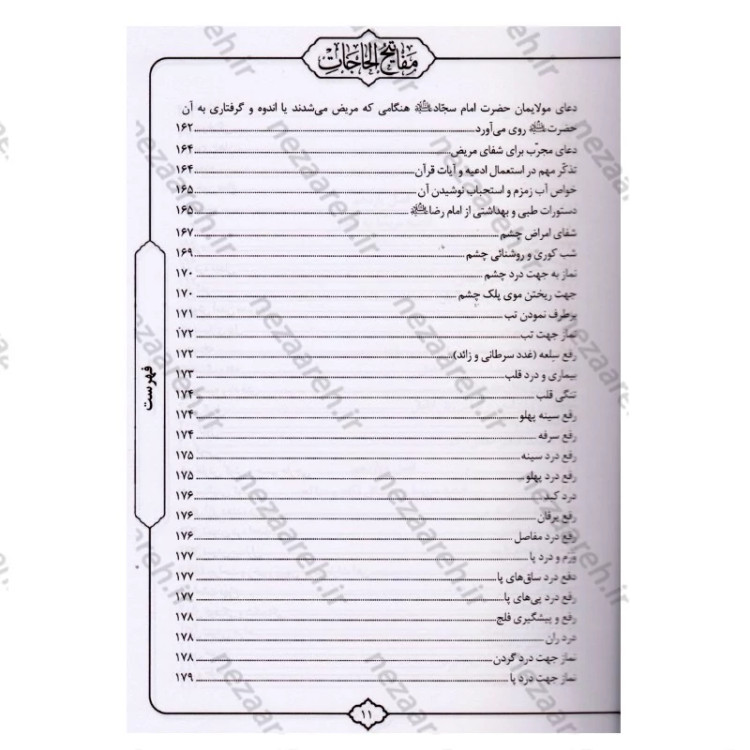 مفاتیح الحاجات
دعای مولایمان حضرت امام سجّاد علیه‌السلام هنگامی که مریض می‌شدند یا اندوه و گرفتاری به آن
حضرت علیه‌السلام روی می‌آورد ۱۶۲
دعای مجرّب برای شفای مریض ۱۶۴
تذکّر مهم در استعمال ادعیه و آیات قرآن ۱۶۴
خواص آب زمزم و استحباب نوشیدن آن ۱۶۵
دستورات طبی و بهداشتی از امام رضا علیه‌السلام ۱۶۵
شفای امراض چشم ۱۶۷
شب کوری و روشنائی چشم ۱۶۹
نماز به جهت درد چشم ۱۷۰
جهت ریختن موی پلک چشم ۱۷۰
برطرف نمودن تب ۱۷۱
نماز جهت تب ۱۷۲
رفع سلعه (غدد سرطانی و زائد) ۱۷۲
بیماری و درد قلب ۱۷۳
تنگی قلب ۱۷۴
رفع سینه پهلو ۱۷۴
رفع سرفه ۱۷۴
رفع درد سینه ۱۷۵
رفع درد پهلو ۱۷۵
درد کبد ۱۷۶
رفع یرقان ۱۷۶
رفع درد مفاصل ۱۷۶
ورم و درد پا ۱۷۷
دفع درد ساق‌های پا ۱۷۷
رفع درد پی‌های پا ۱۷۷
رفع و پیشگیری فلج ۱۷۸
درد ران ۱۷۸
نماز جهت درد گردن ۱۷۸
نماز جهت درد پا ۱۷۹
فهرست
۱۱
nezaareh.ir